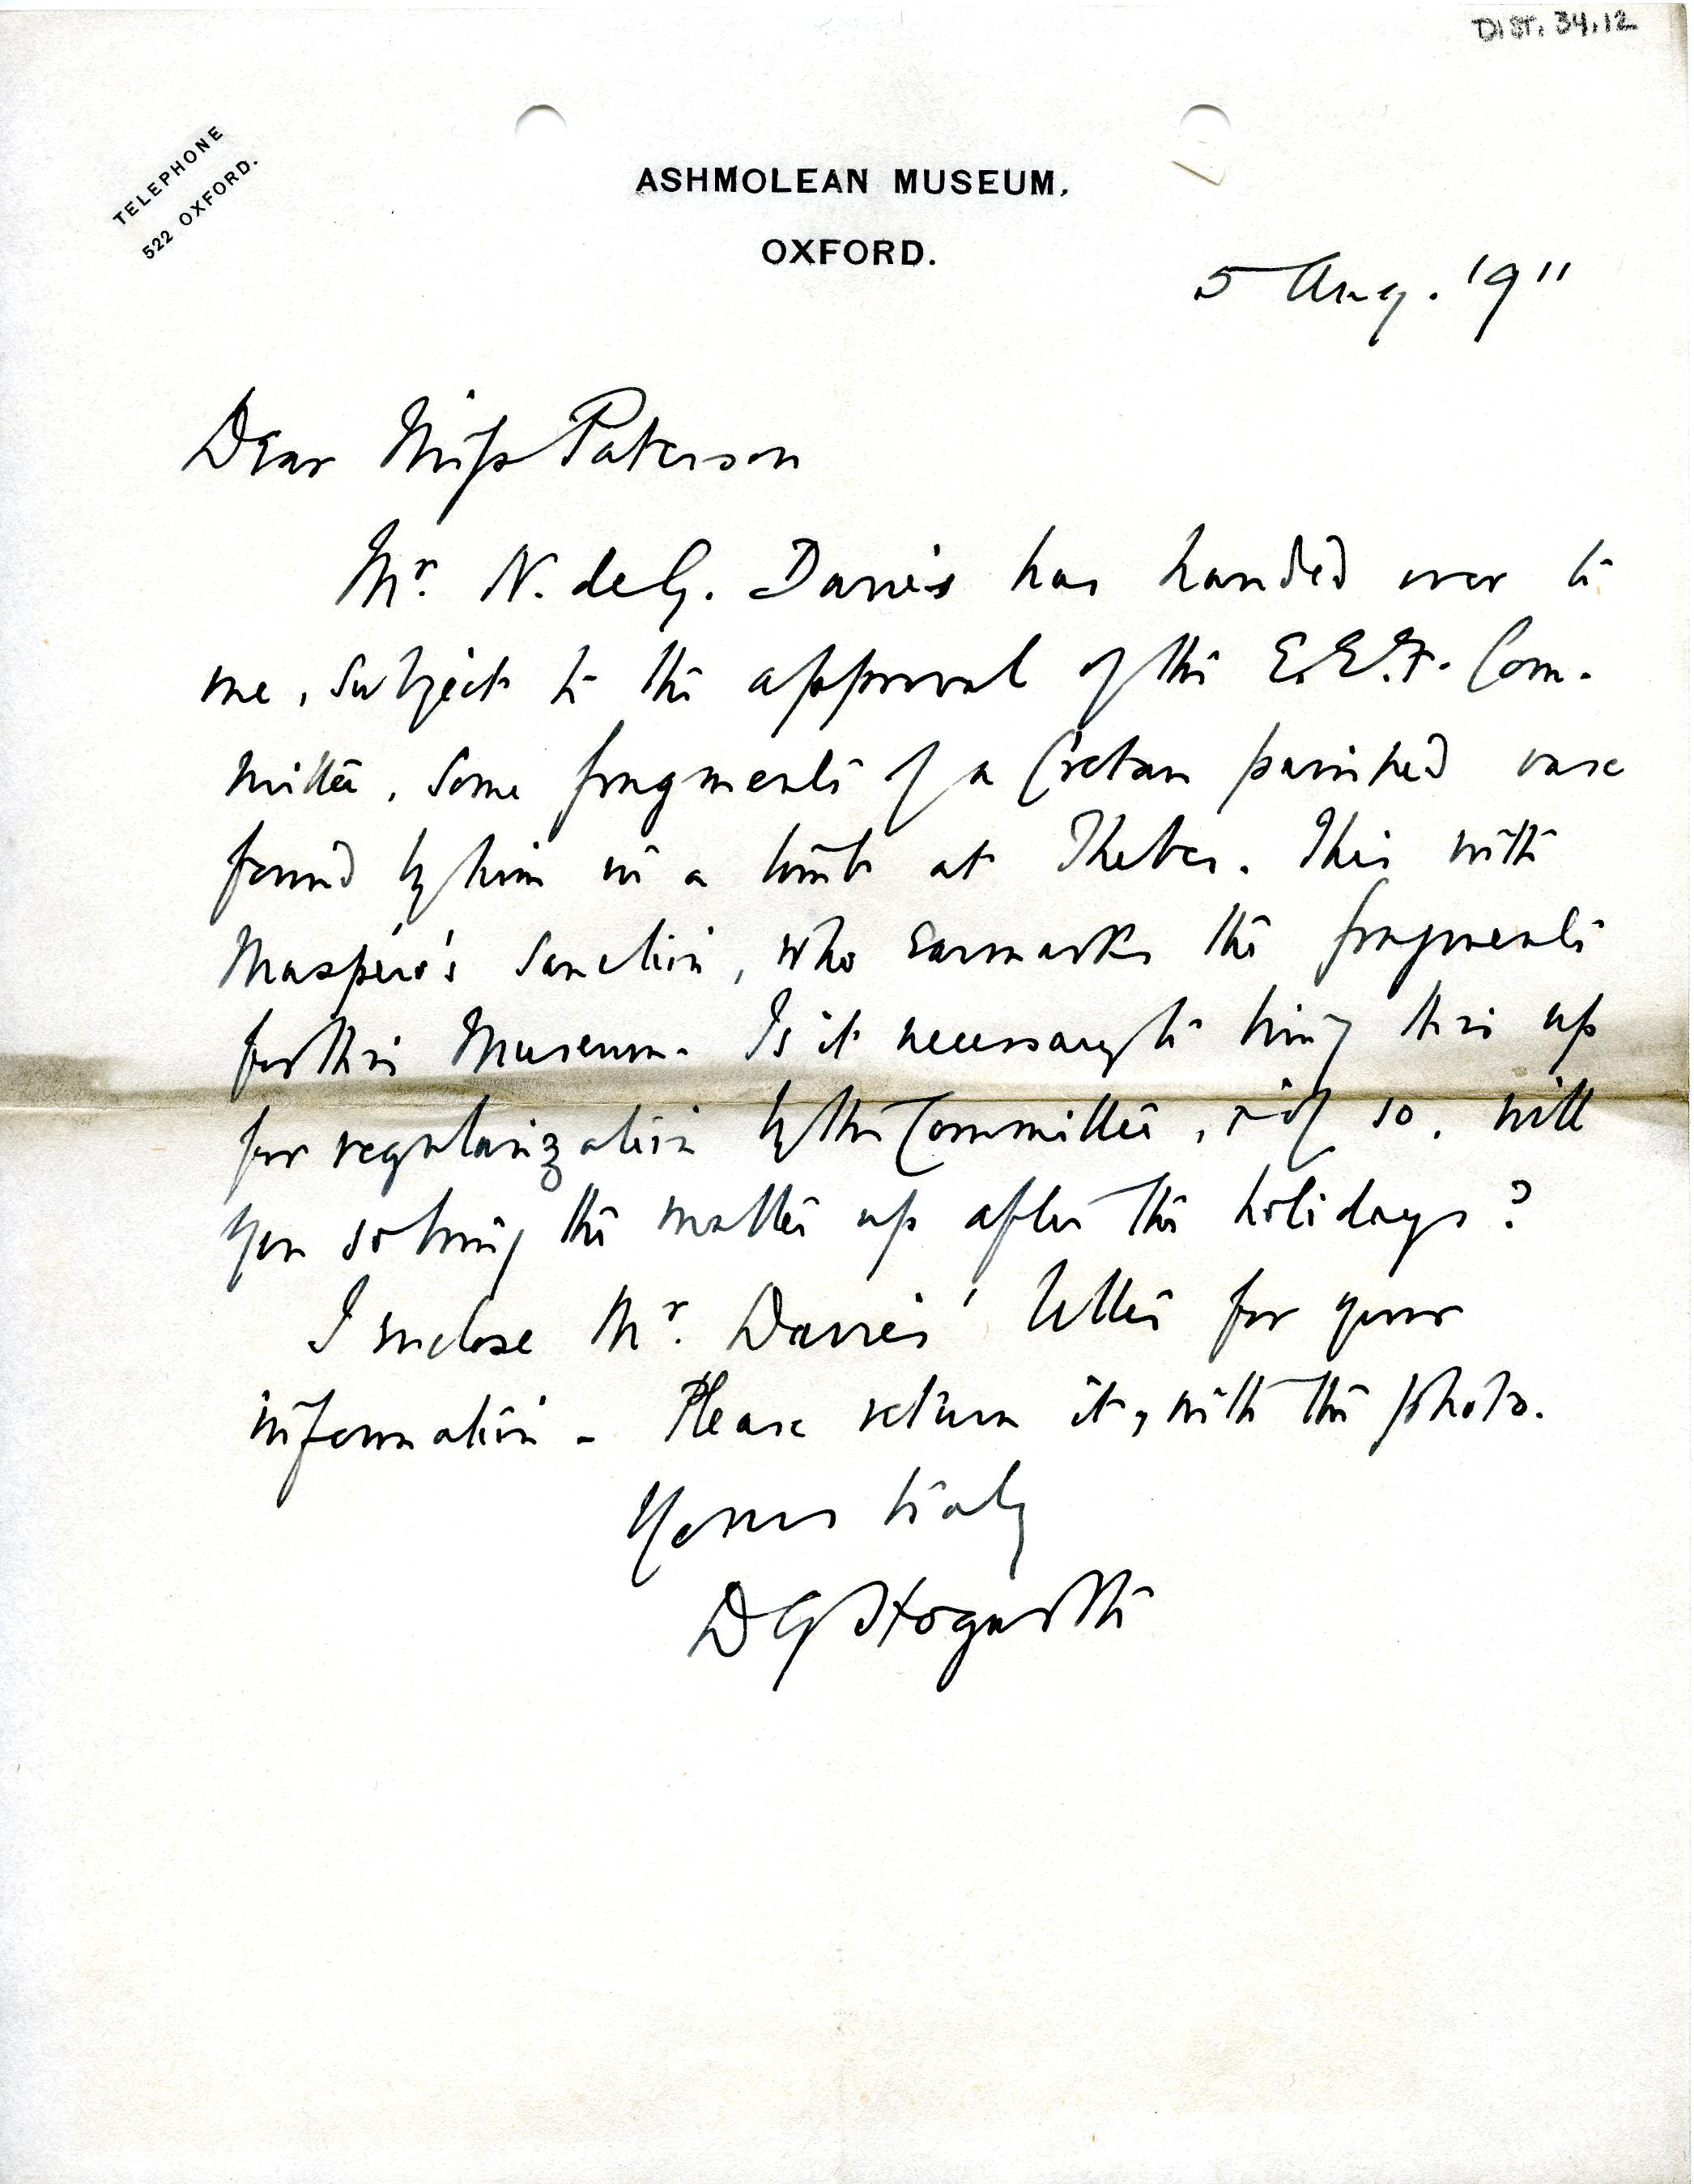 DIST. 34.12
TELEPHONE
522 OXFORD.
ASHMOLEAN MUSEUM,
OXFORD.
5 Aug. '911
Dear Miss Paterson
Mr. N. de G. Davies has handed over to
me, subject to the approval of the E.E.F. Com-
mittee, some fragments of a Cretan painted vase
found by him in a tomb at Thebes. This with
Maspero's sanction, who earmarks the fragments
for this Museum. Is it necessary to bring this up
for regularization by the Committee, & if so, will
you so bring the matter up after the holidays?
I enclose Mr. Davies' letter for your
information - Please return it, with the photo.
Yours truly
D G Hogarth